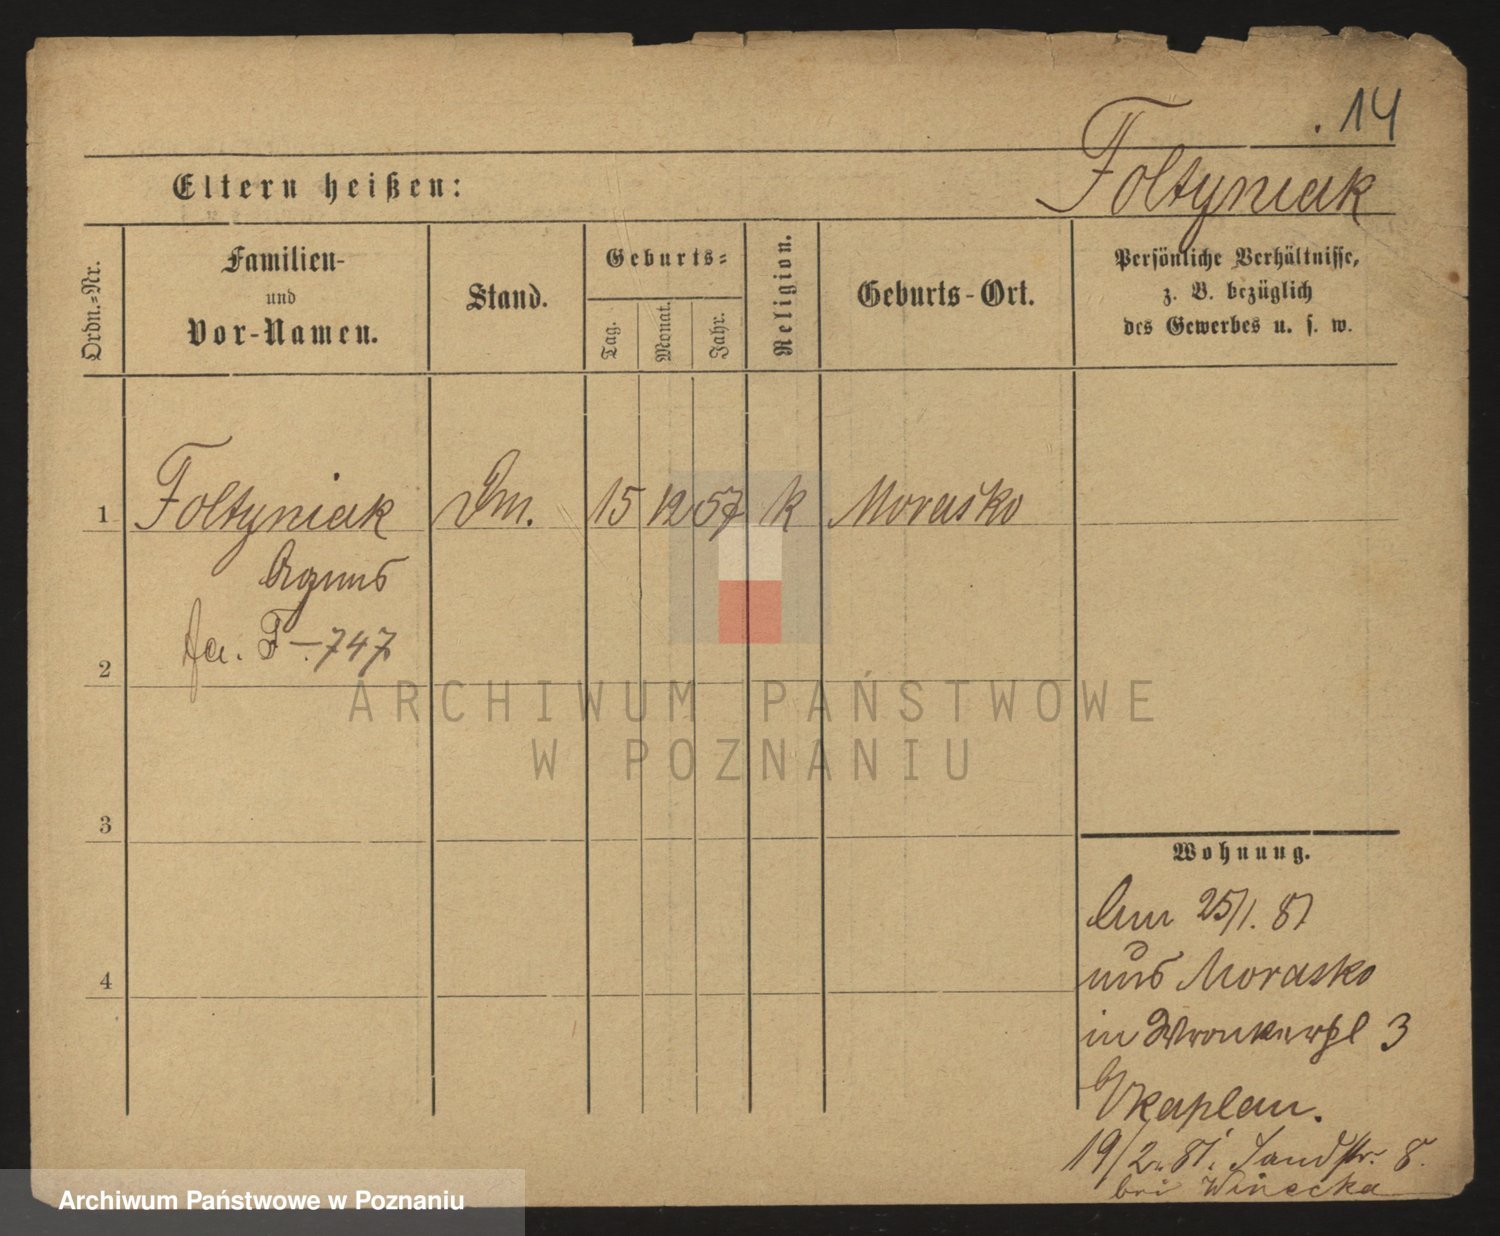 . 14
Foltyniak
Eltern heißen:
Ordn.=Nr.
Familien-
und
Vor-Namen.
Stand.
Geburts=
Tag.
Monat.
Jahr.
Religion.
Geburts-Ort.
Persönliche Verhältnisse,
z. B. bezüglich
des Gewerbes u. s. w.
1 Foltyniak Dm. 15 12 57 k Morasko
Agnes
fa. F—747
2
3
4
Wohnung.
Am 25/1. 81
aus Morasko
in Wronkerpl 3
b/Kaplan.
19/2. 81. Sandstr. 8.
bei Winecka
ARCHIWUM PAŃSTWOWE
W POZNANIU
Archiwum Państwowe w Poznaniu